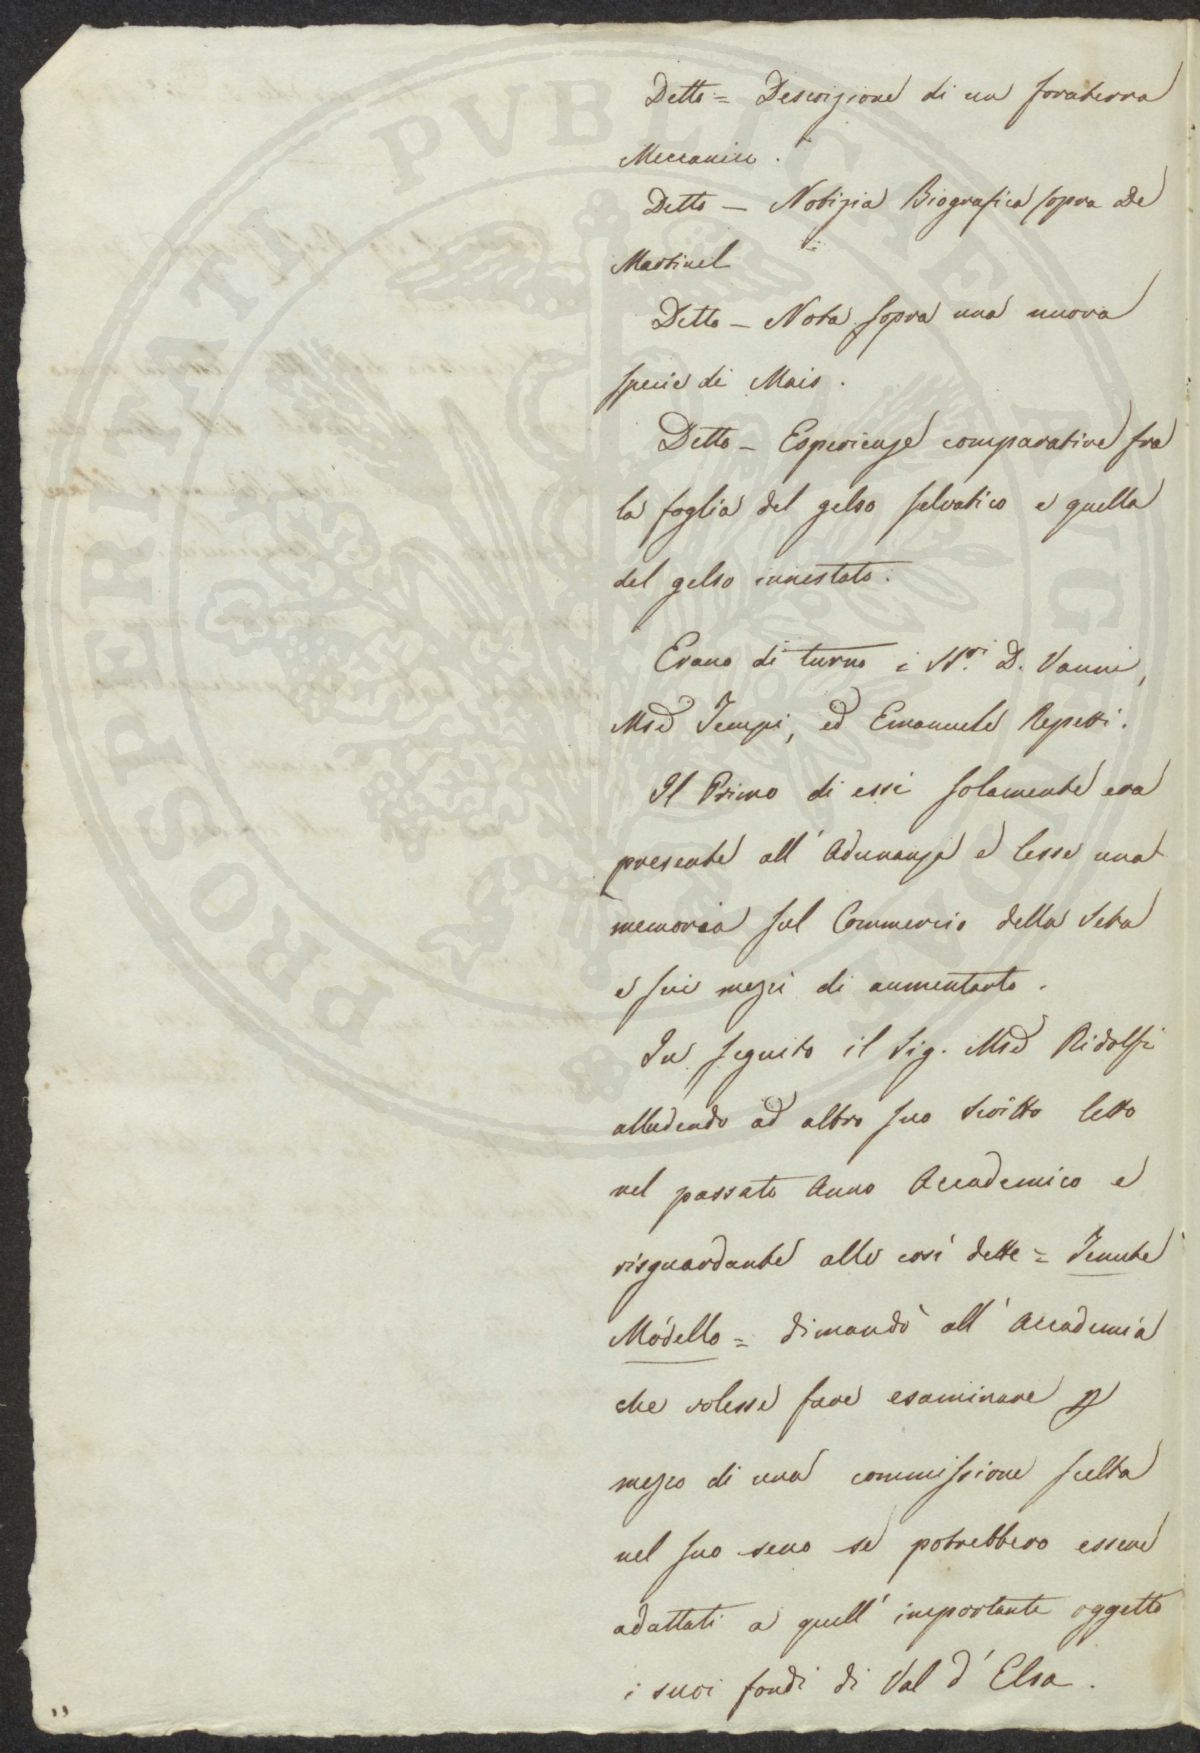 Detto = Descrizione di un foraterra
Meccanico.
Detto — Notizia Biografica sopra De
Martinel
Detto — Nota sopra una nuova
specie di Mais.
Detto — Esperienze comparative fra
la foglia del gelso selvatico e quella
del gelso innestato.
Erano di turno i SS.ri D. Vanni,
Mse Tempi, ed Emanuele Repetti.
Il Primo di essi solamente era
presente all' Adunanza e lesse una
memoria sul Commercio della Seta
e sui mezzi di aumentarlo.
In seguito il Sig. Mse Ridolfi
alludendo ad altro suo scritto letto
nel passato Anno Accademico e
risguardante alle così dette = Tenute
Modello = dimandò all' Accademia
che volesse fare esaminare p
mezzo di una commissione scelta
nel suo seno se potrebbero essere
adattati a quell' importante oggetto
i suoi fondi di Val d' Elsa.
PROSPERITATI PVBLICAE AVGENDAE